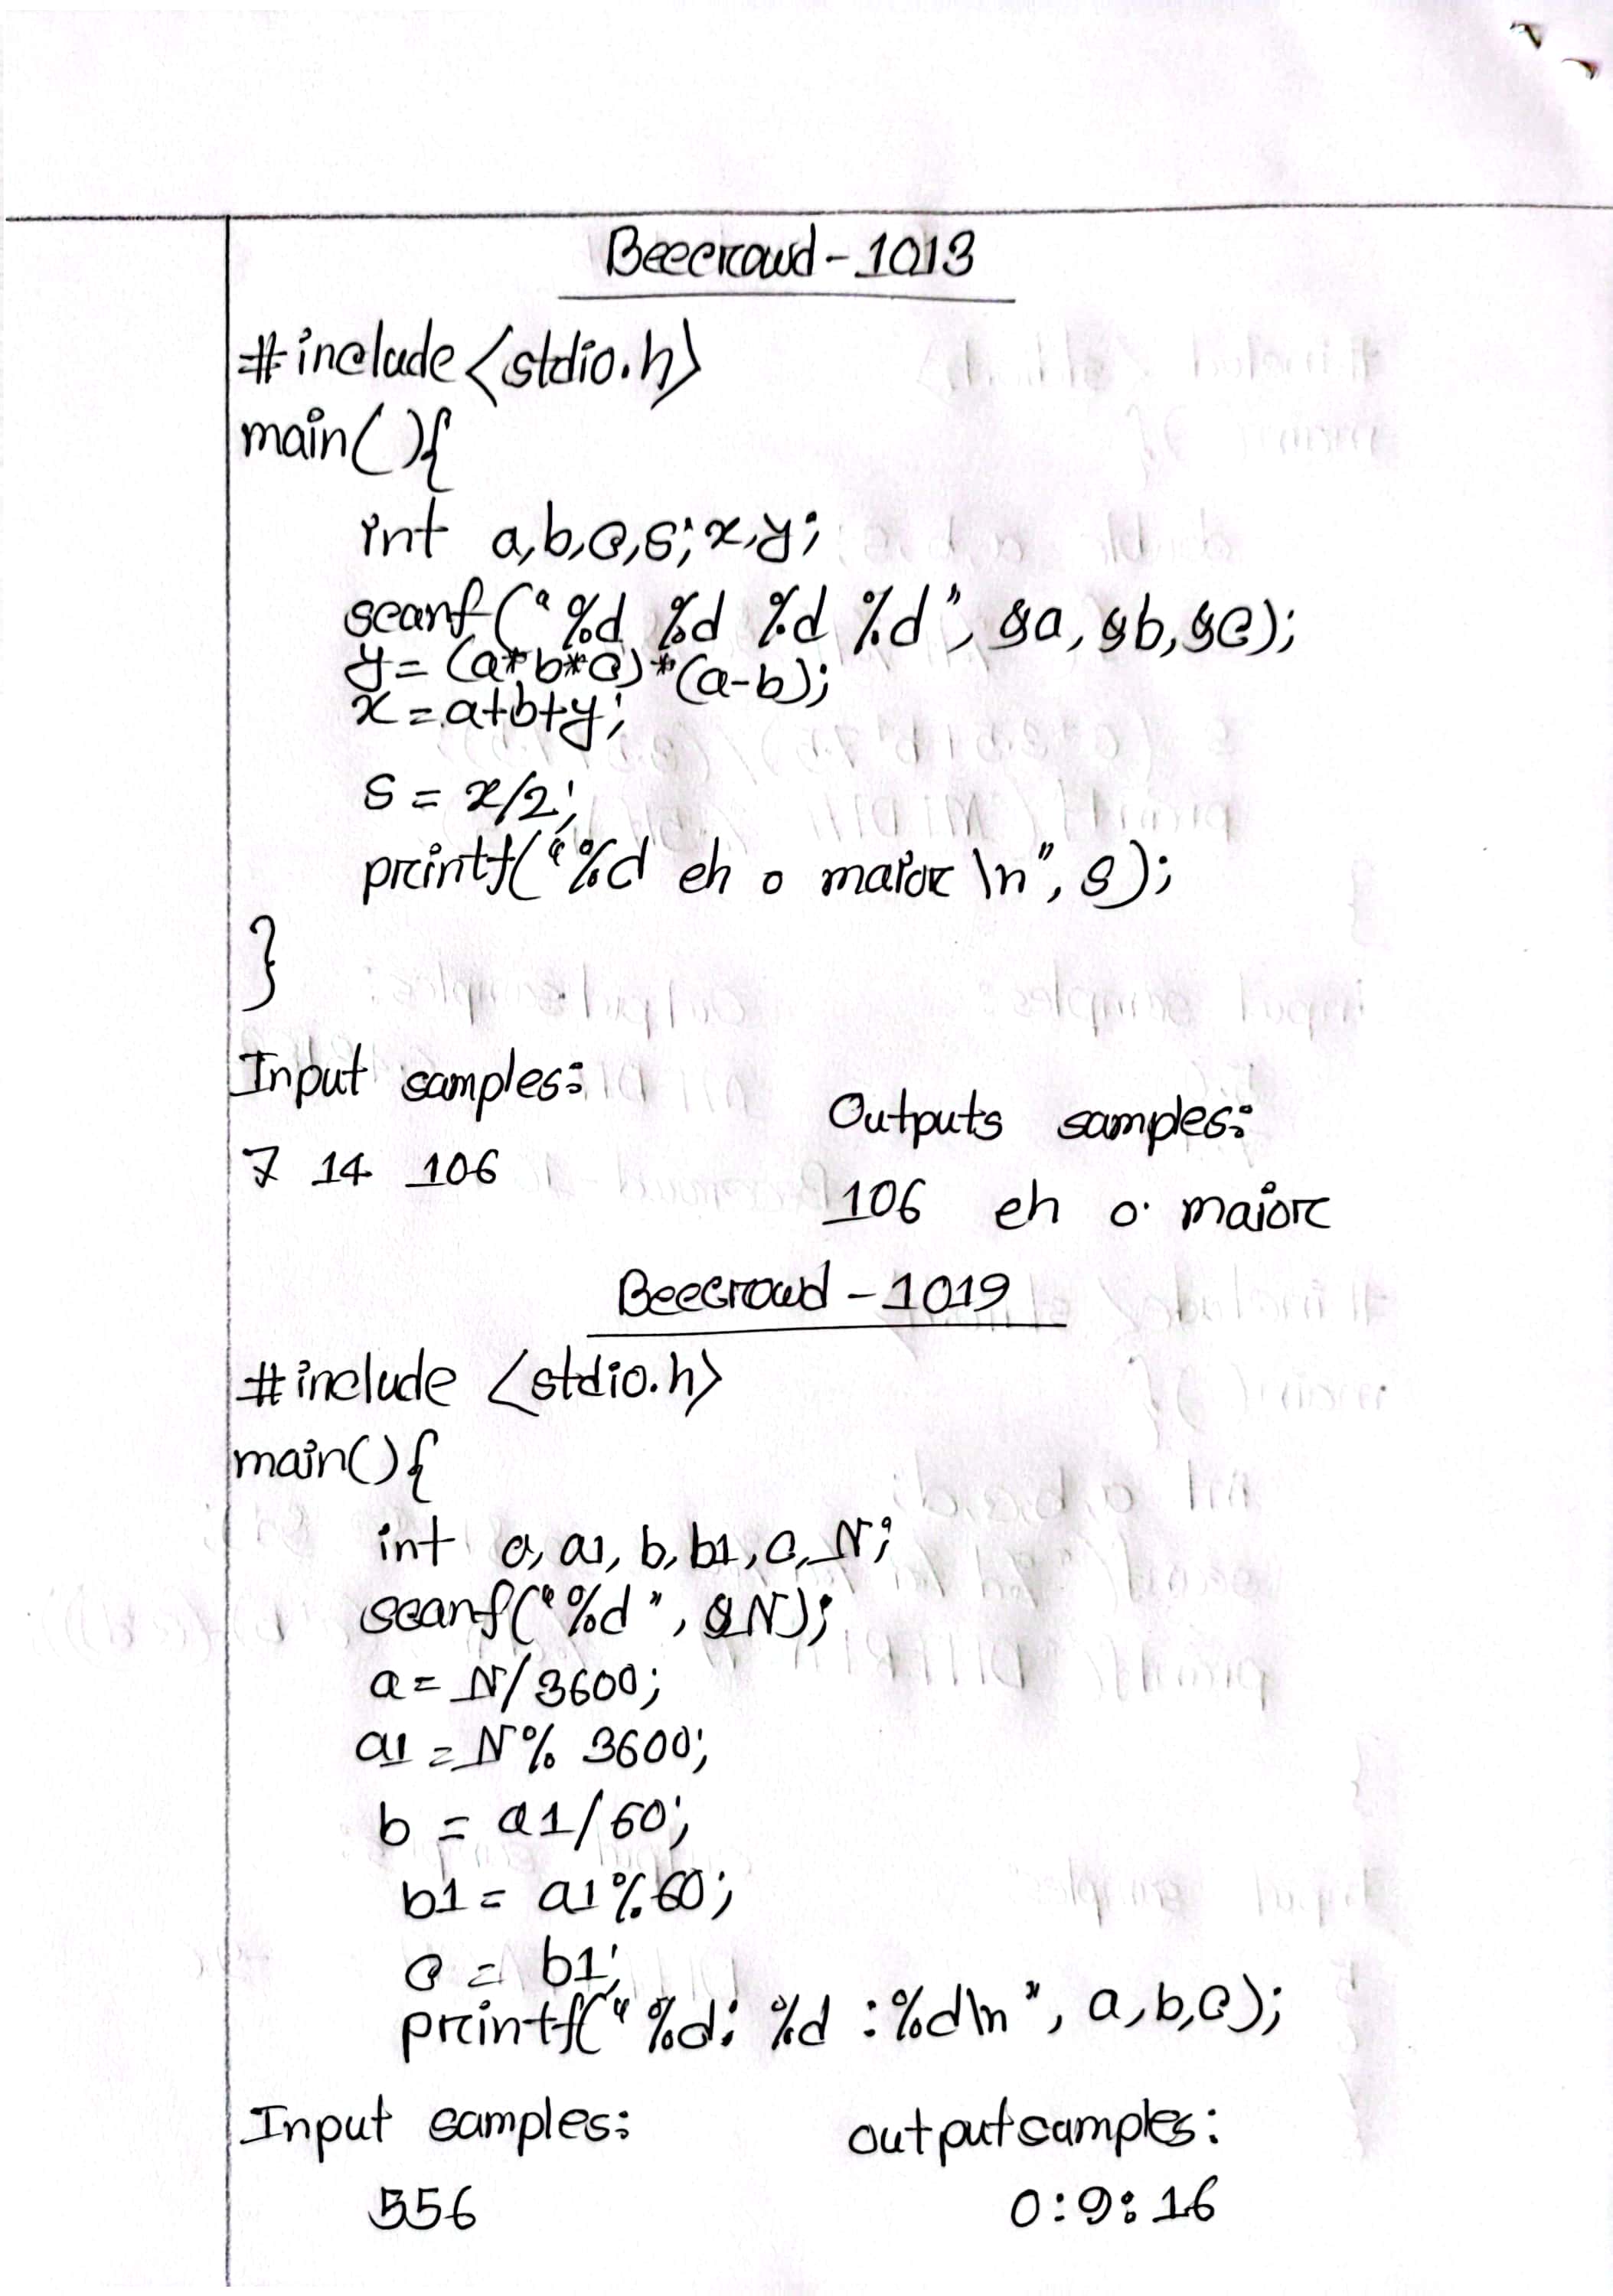 Beecrowd - 1013
#include <stdio.h>
main(){
int a,b,c,s;x,y;
scanf("%d %d %d %d", &a, &b, &c);
y= (a*b*c)*(a-b);
x = a+b+y;
s = x/2;
printf("%d eh o maior \n", s);
}
Input samples:
Outputs samples:
7 14 106
106 eh o maior
Beecrowd - 1019
#include <stdio.h>
main(){
int a, a1, b, b1, c, N;
scanf("%d", &N);
a = N/3600;
a1 = N% 3600;
b = a1/60;
b1 = a1%60;
c = b1;
printf("%d: %d :%d\n", a,b,c);
Input samples:
output samples:
556
0:9:16